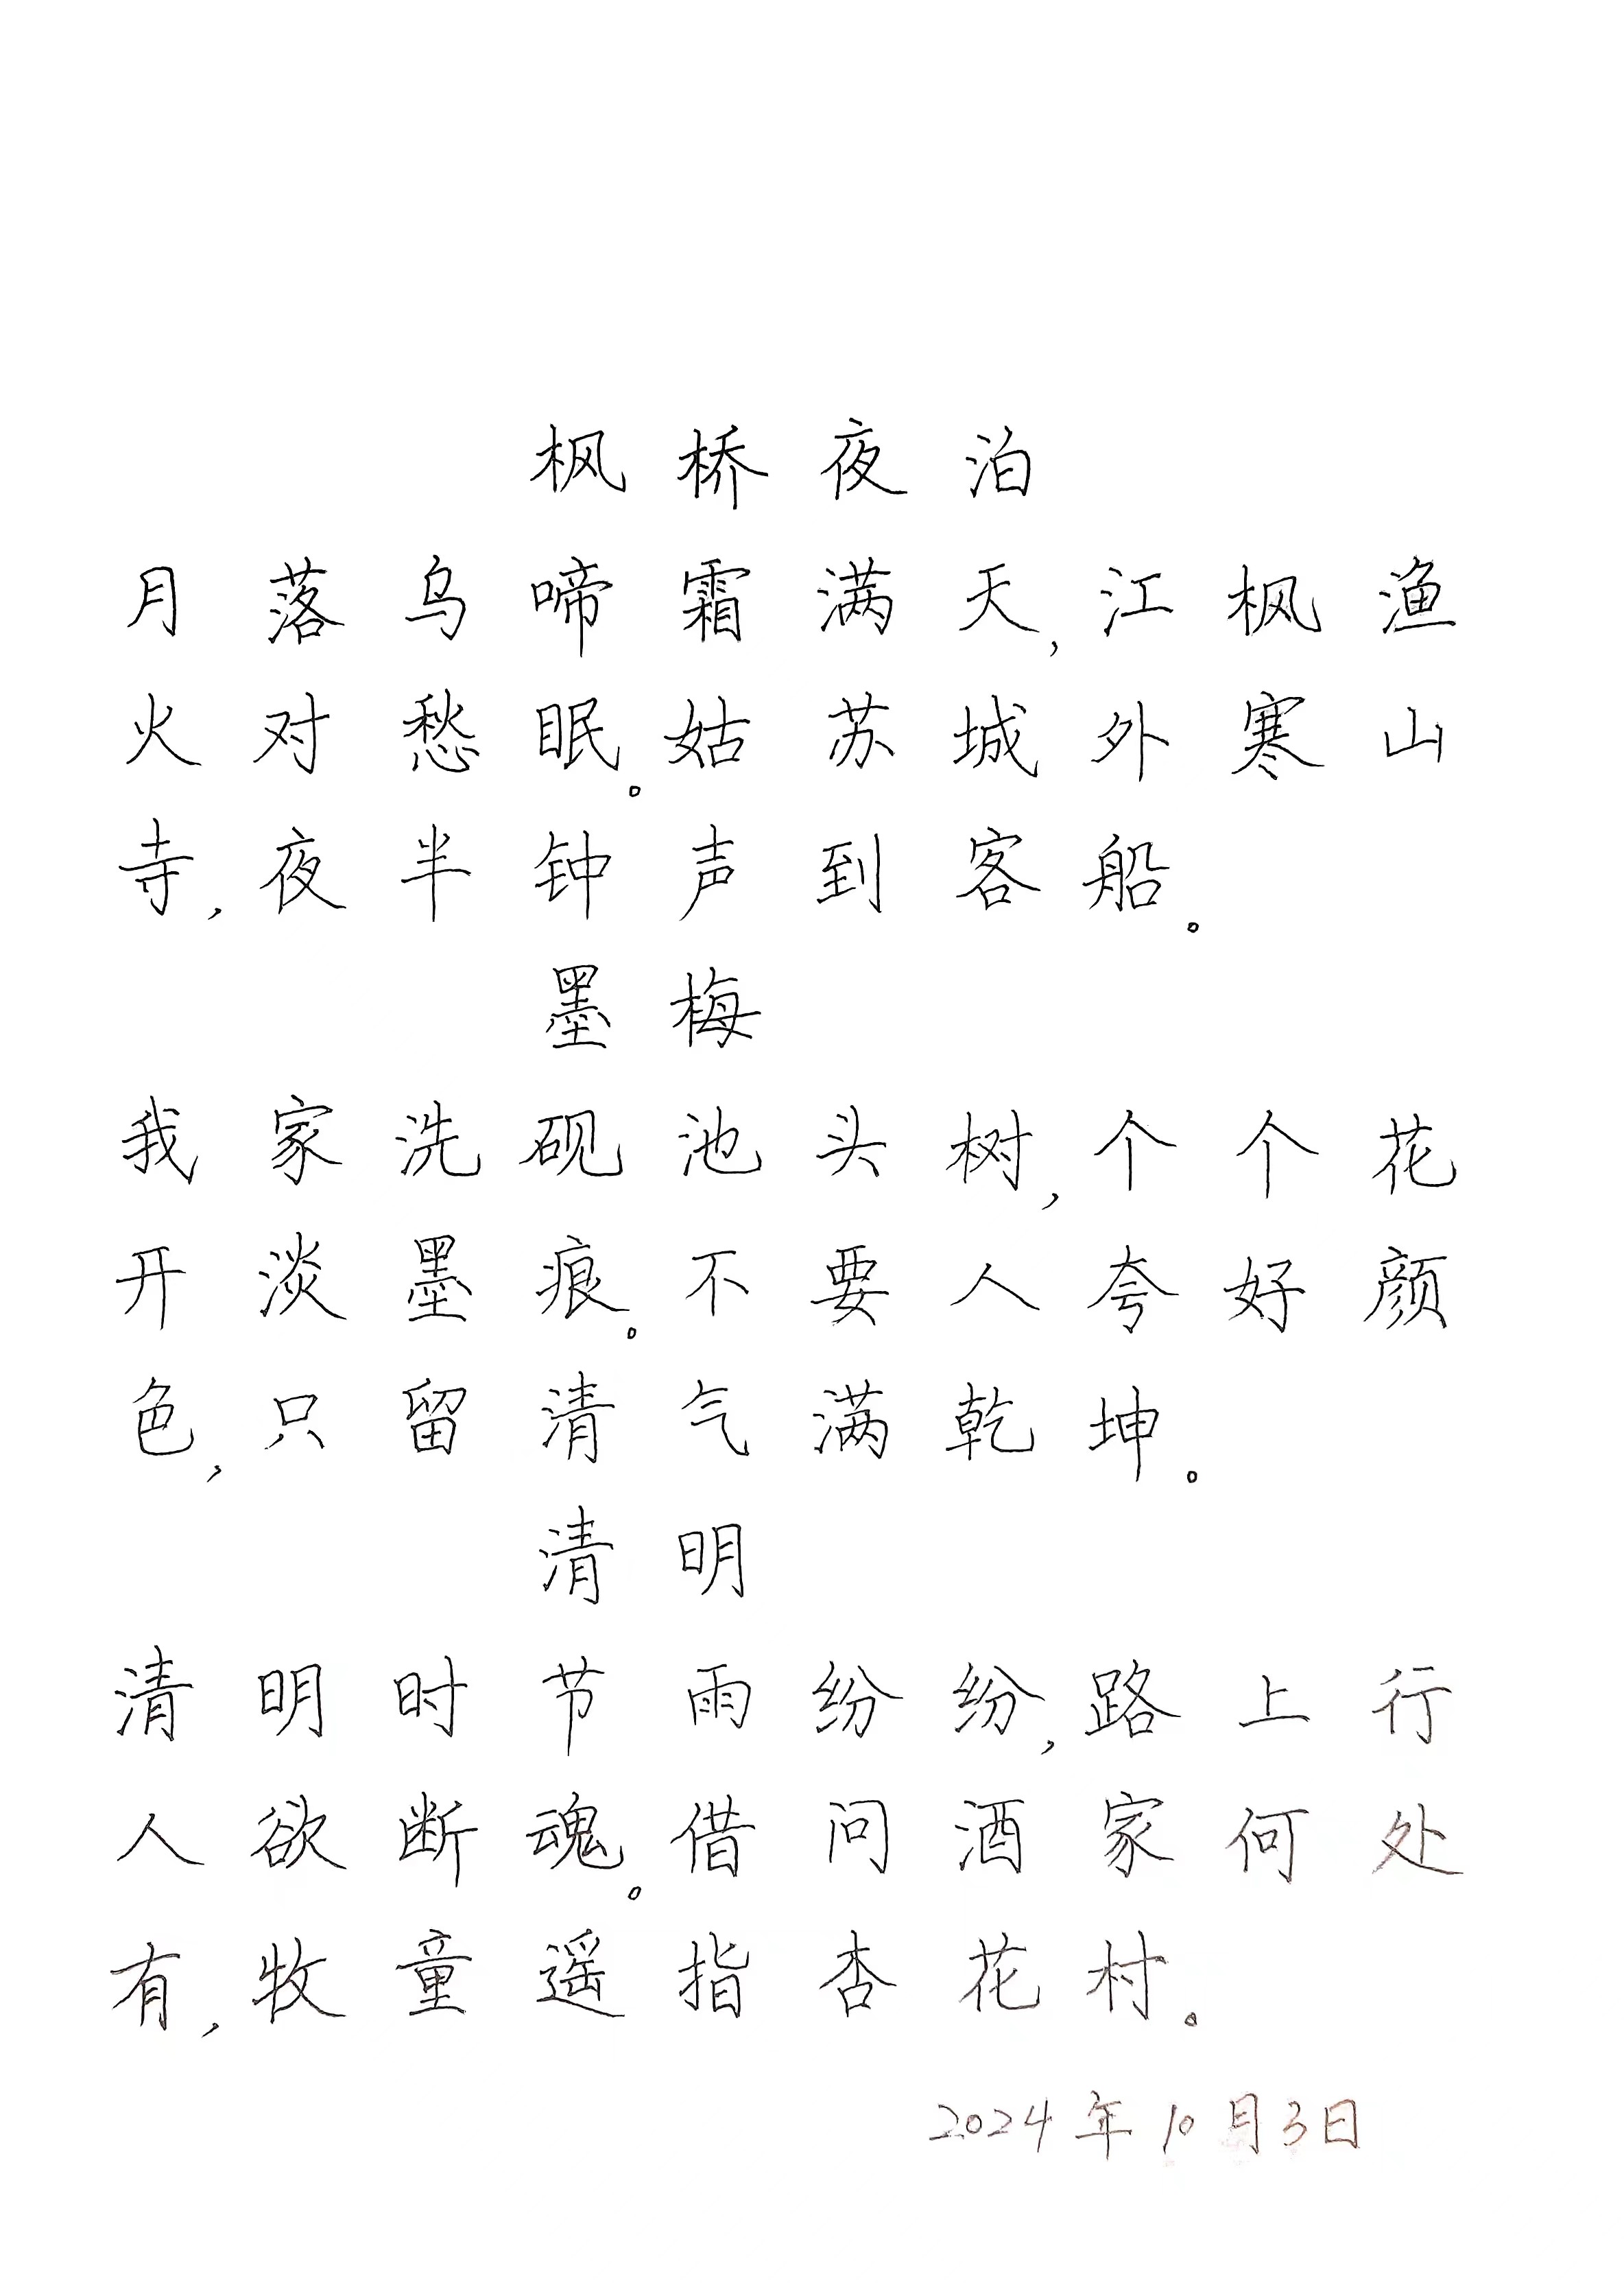 枫桥夜泊
月落乌啼霜满天,江枫渔
火对愁眠。姑苏城外寒山
寺,夜半钟声到客船。
墨梅
我家洗砚池头树,个个花
开淡墨痕。不要人夸好颜
色,只留清气满乾坤。
清明
清明时节雨纷纷,路上行
人欲断魂。借问酒家何处
有,牧童遥指杏花村。
2024年10月3日